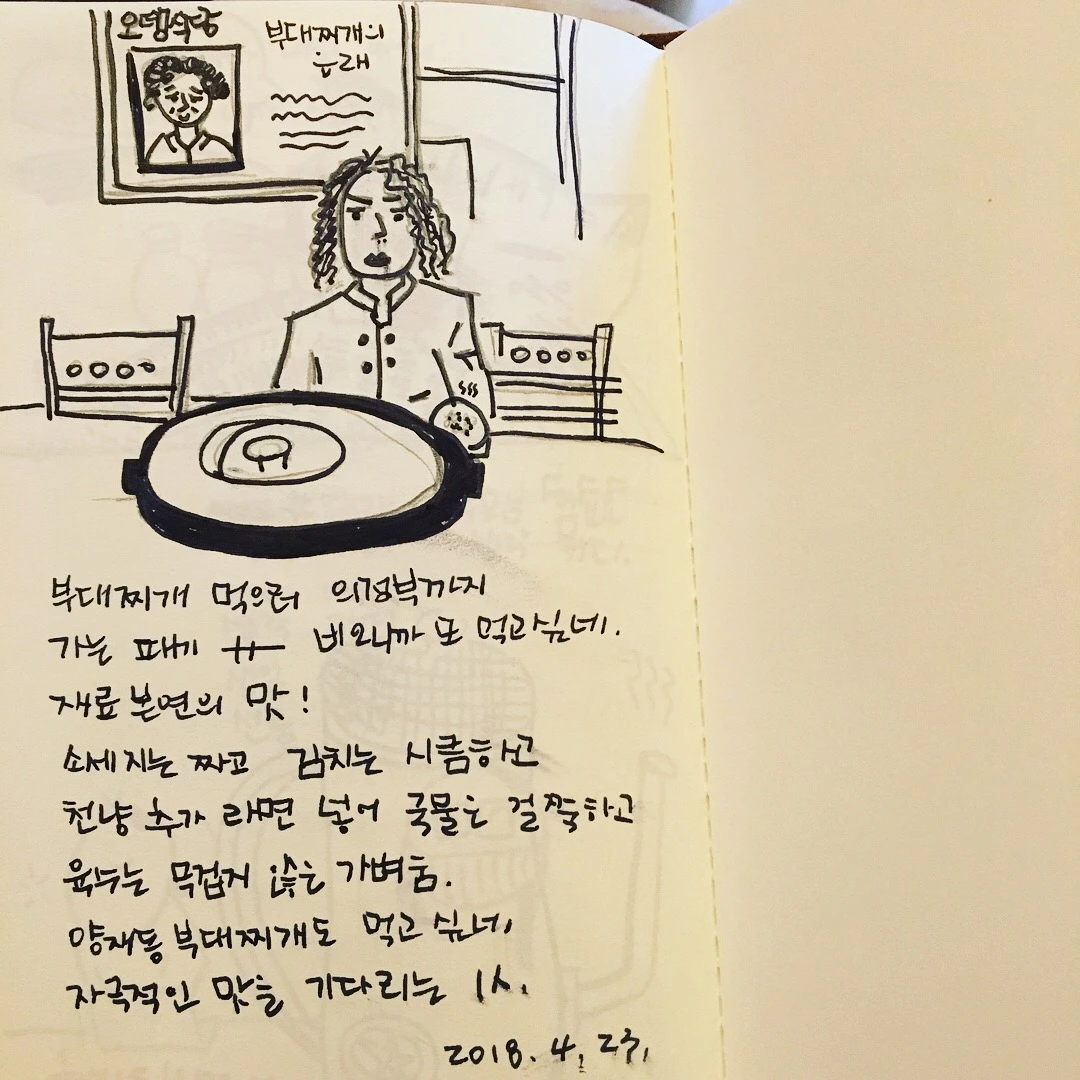 오뎅식당
부대찌개의
유래
부대찌개 먹으러 의정부까지
가는 패기 ㅠ 비오니까 또 먹고싶네.
재료 본연의 맛!
소세지는 짜고 김치는 시큼하고
천냥 추가 라면 넣어 국물은 걸쭉하고
육수는 무겁지 않은 가벼움.
양재동 부대찌개도 먹고 싶네,
자극적인 맛을 기다리는 1人.
2018. 4. 23,